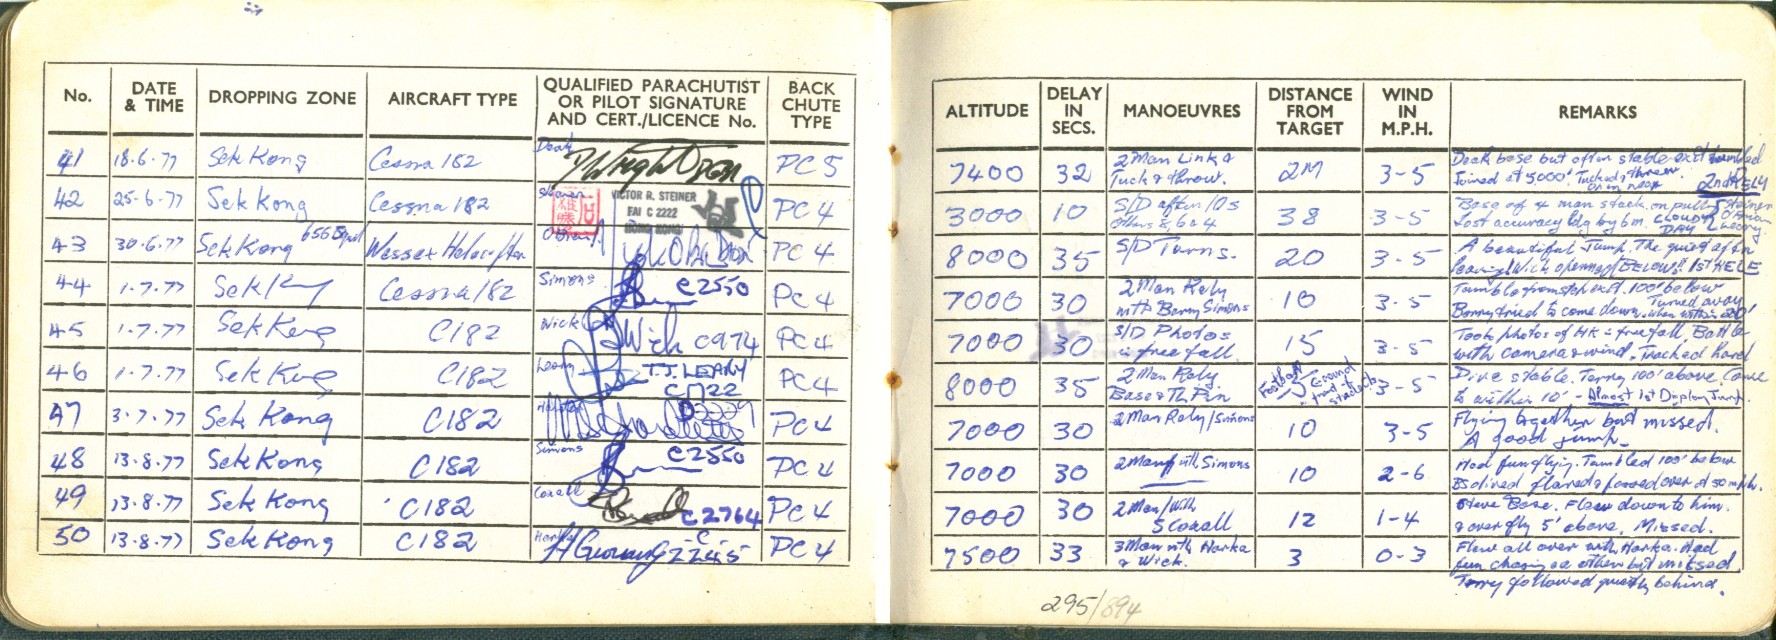 No.
DATE & TIME
DROPPING ZONE
AIRCRAFT TYPE
QUALIFIED PARACHUTIST OR PILOT SIGNATURE AND CERT./LICENCE No.
BACK CHUTE TYPE
41 18.6.77 Sek Kong Cessna 182 Doak PC 5
42 25-6-77 Sek Kong Cessna 182 VICTOR R. STEINER FAI C 2222 HONG KONG PC 4
43 30.6.77 Sek Kong 656 Sqd Wessex PC 4
44 1.7.77 Sek Kong Cessna 182 Simons C2550 PC 4
45 1.7.77 Sek Kong C182 Wick Wick C974 PC 4
46 1.7.77 Sek Kong C182 Leary T.J. LEARY PC 4
47 3.7.77 Sek Kong C182 PC 4
48 13.8.77 Sek Kong C182 Simons C2550 PC 4
49 13.8.77 Sek Kong C182 Coxall C2764 PC 4
50 13.8.77 Sek Kong C182 C 2245 PC 4
ALTITUDE
DELAY IN SECS.
MANOEUVRES
DISTANCE FROM TARGET
WIND IN M.P.H.
REMARKS
7400 32 2 Man Link & Tuck & throw. 2M 3-5 Doak base but often stable exit tumbled
Joined at 5,000'. Tuck & threw 2nd RELY
3000 10 S/D after 10s 38 3-5 Base of 4 man stack on pull Steiner
Lost accuracy by 6m. CLOUDY DAY
8000 35 S/D Turns. 20 3-5 A beautiful Jump. The quiet after
leaving! Wick opened BELOW!! 1st HELE
7000 30 2 Man Rely with Barry Simons 10 3-5 Tumble from exit. 100' below
Barry tried to come down. Turned away when within 20'
7000 30 S/D Photos in free fall 15 3-5 Took photos of HK in free fall. Battle
with camera & wind. Tracked hard
8000 35 2 Man Rely. Base & Th Pin Football Ground 5 3-5 Dive stable. Terry 100' above. Came
to within 10' - Almost 1st Display Jump.
7000 30 2 Man Rely/Simons 10 3-5 Flying together but missed.
A good jump.
7000 30 2 Man with Simons 10 2-6 Had fun flying. Tumbled 100' below
BS dived flared & passed over at 50 mph.
7000 30 2 Man/With S Coxall 12 1-4 Steve Base. Flew down to him.
& over fly 5' above. Missed.
7500 33 3 Man with Harka & Wick. 3 0-3 Flew all over with Harka. Had
fun chasing ea other but missed
Terry followed quietly behind.
295/894